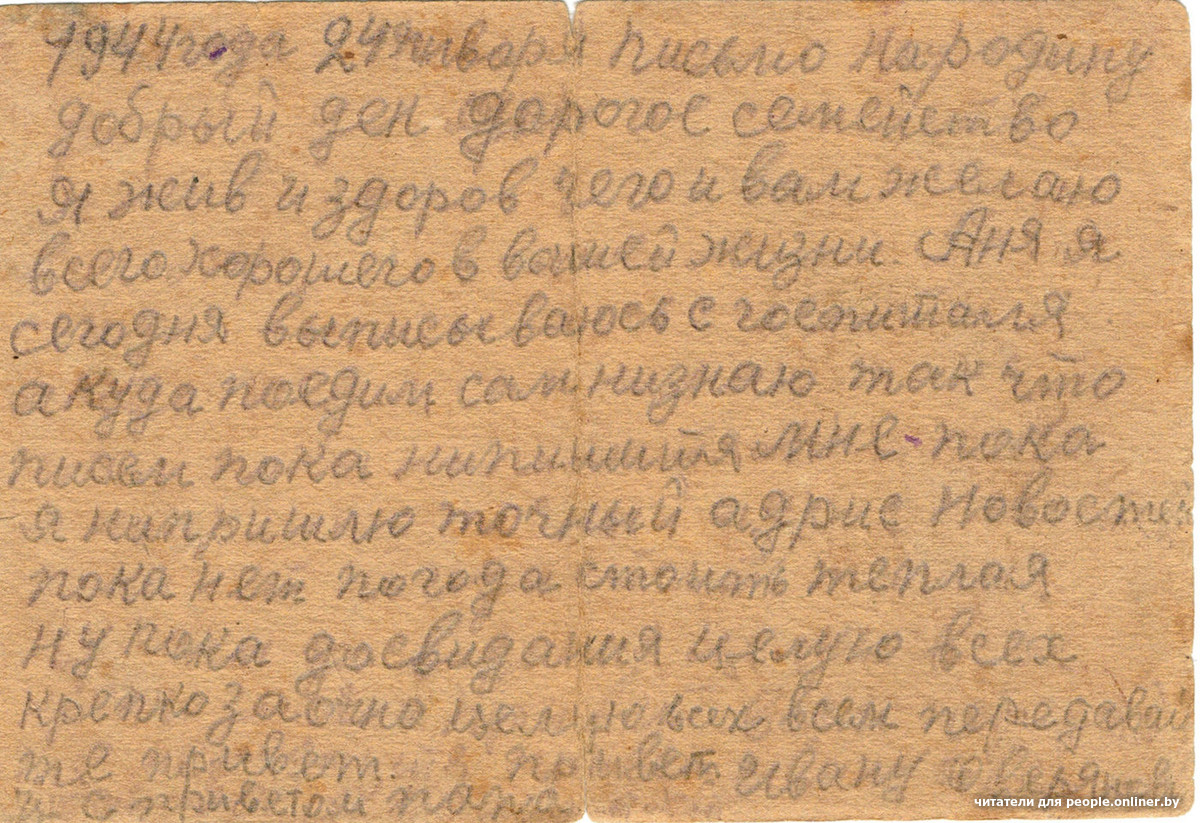 1944 года 24 января Письмо на родину
добрый ден дорогое семейство
я жив и здоров чего и вам желаю
всего хорошего в вашей жизни. Аня я
сегодня выписываюсь с госпиталя
а куда поедим сам низнаю так что
писем пока нипишитя мне пока
я нипришлю точный адрис Новостей
пока нет погода стоить теплая
ну пока досвидания целую всех
крепко заочно целую всех всем передавай
те привет. привет Ивану
с приветом папа
читатели для people.onliner.by